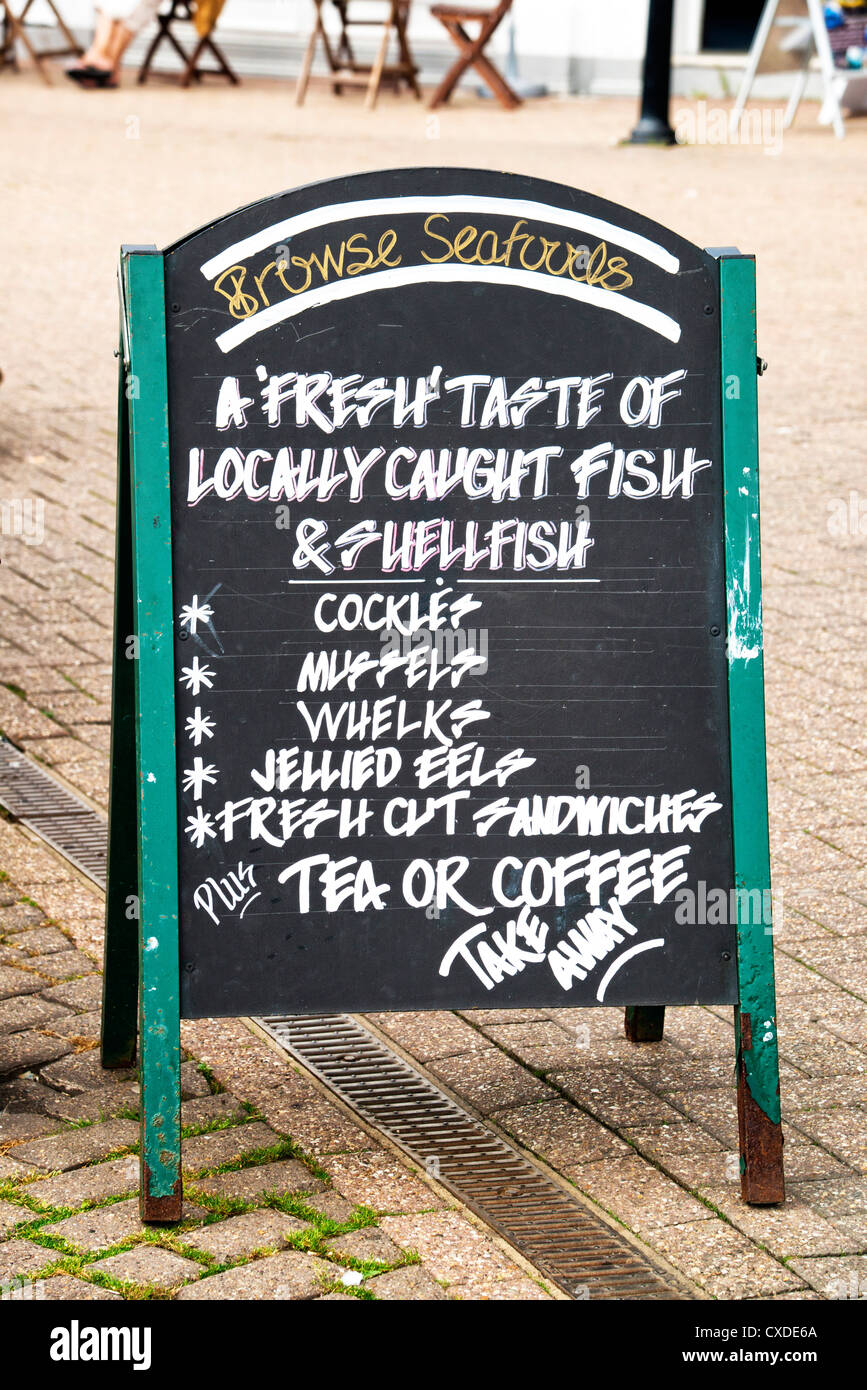 Browse Seafoods
A 'FRESH' TASTE OF
LOCALLY CAUGHT FISH
& SHELLFISH
* COCKLES
* MUSSELS
* WHELKS
* JELLIED EELS
* FRESH CUT SANDWICHES
Plus TEA OR COFFEE
TAKE AWAY
alamy
Image ID: CXDE6A
www.alamy.com